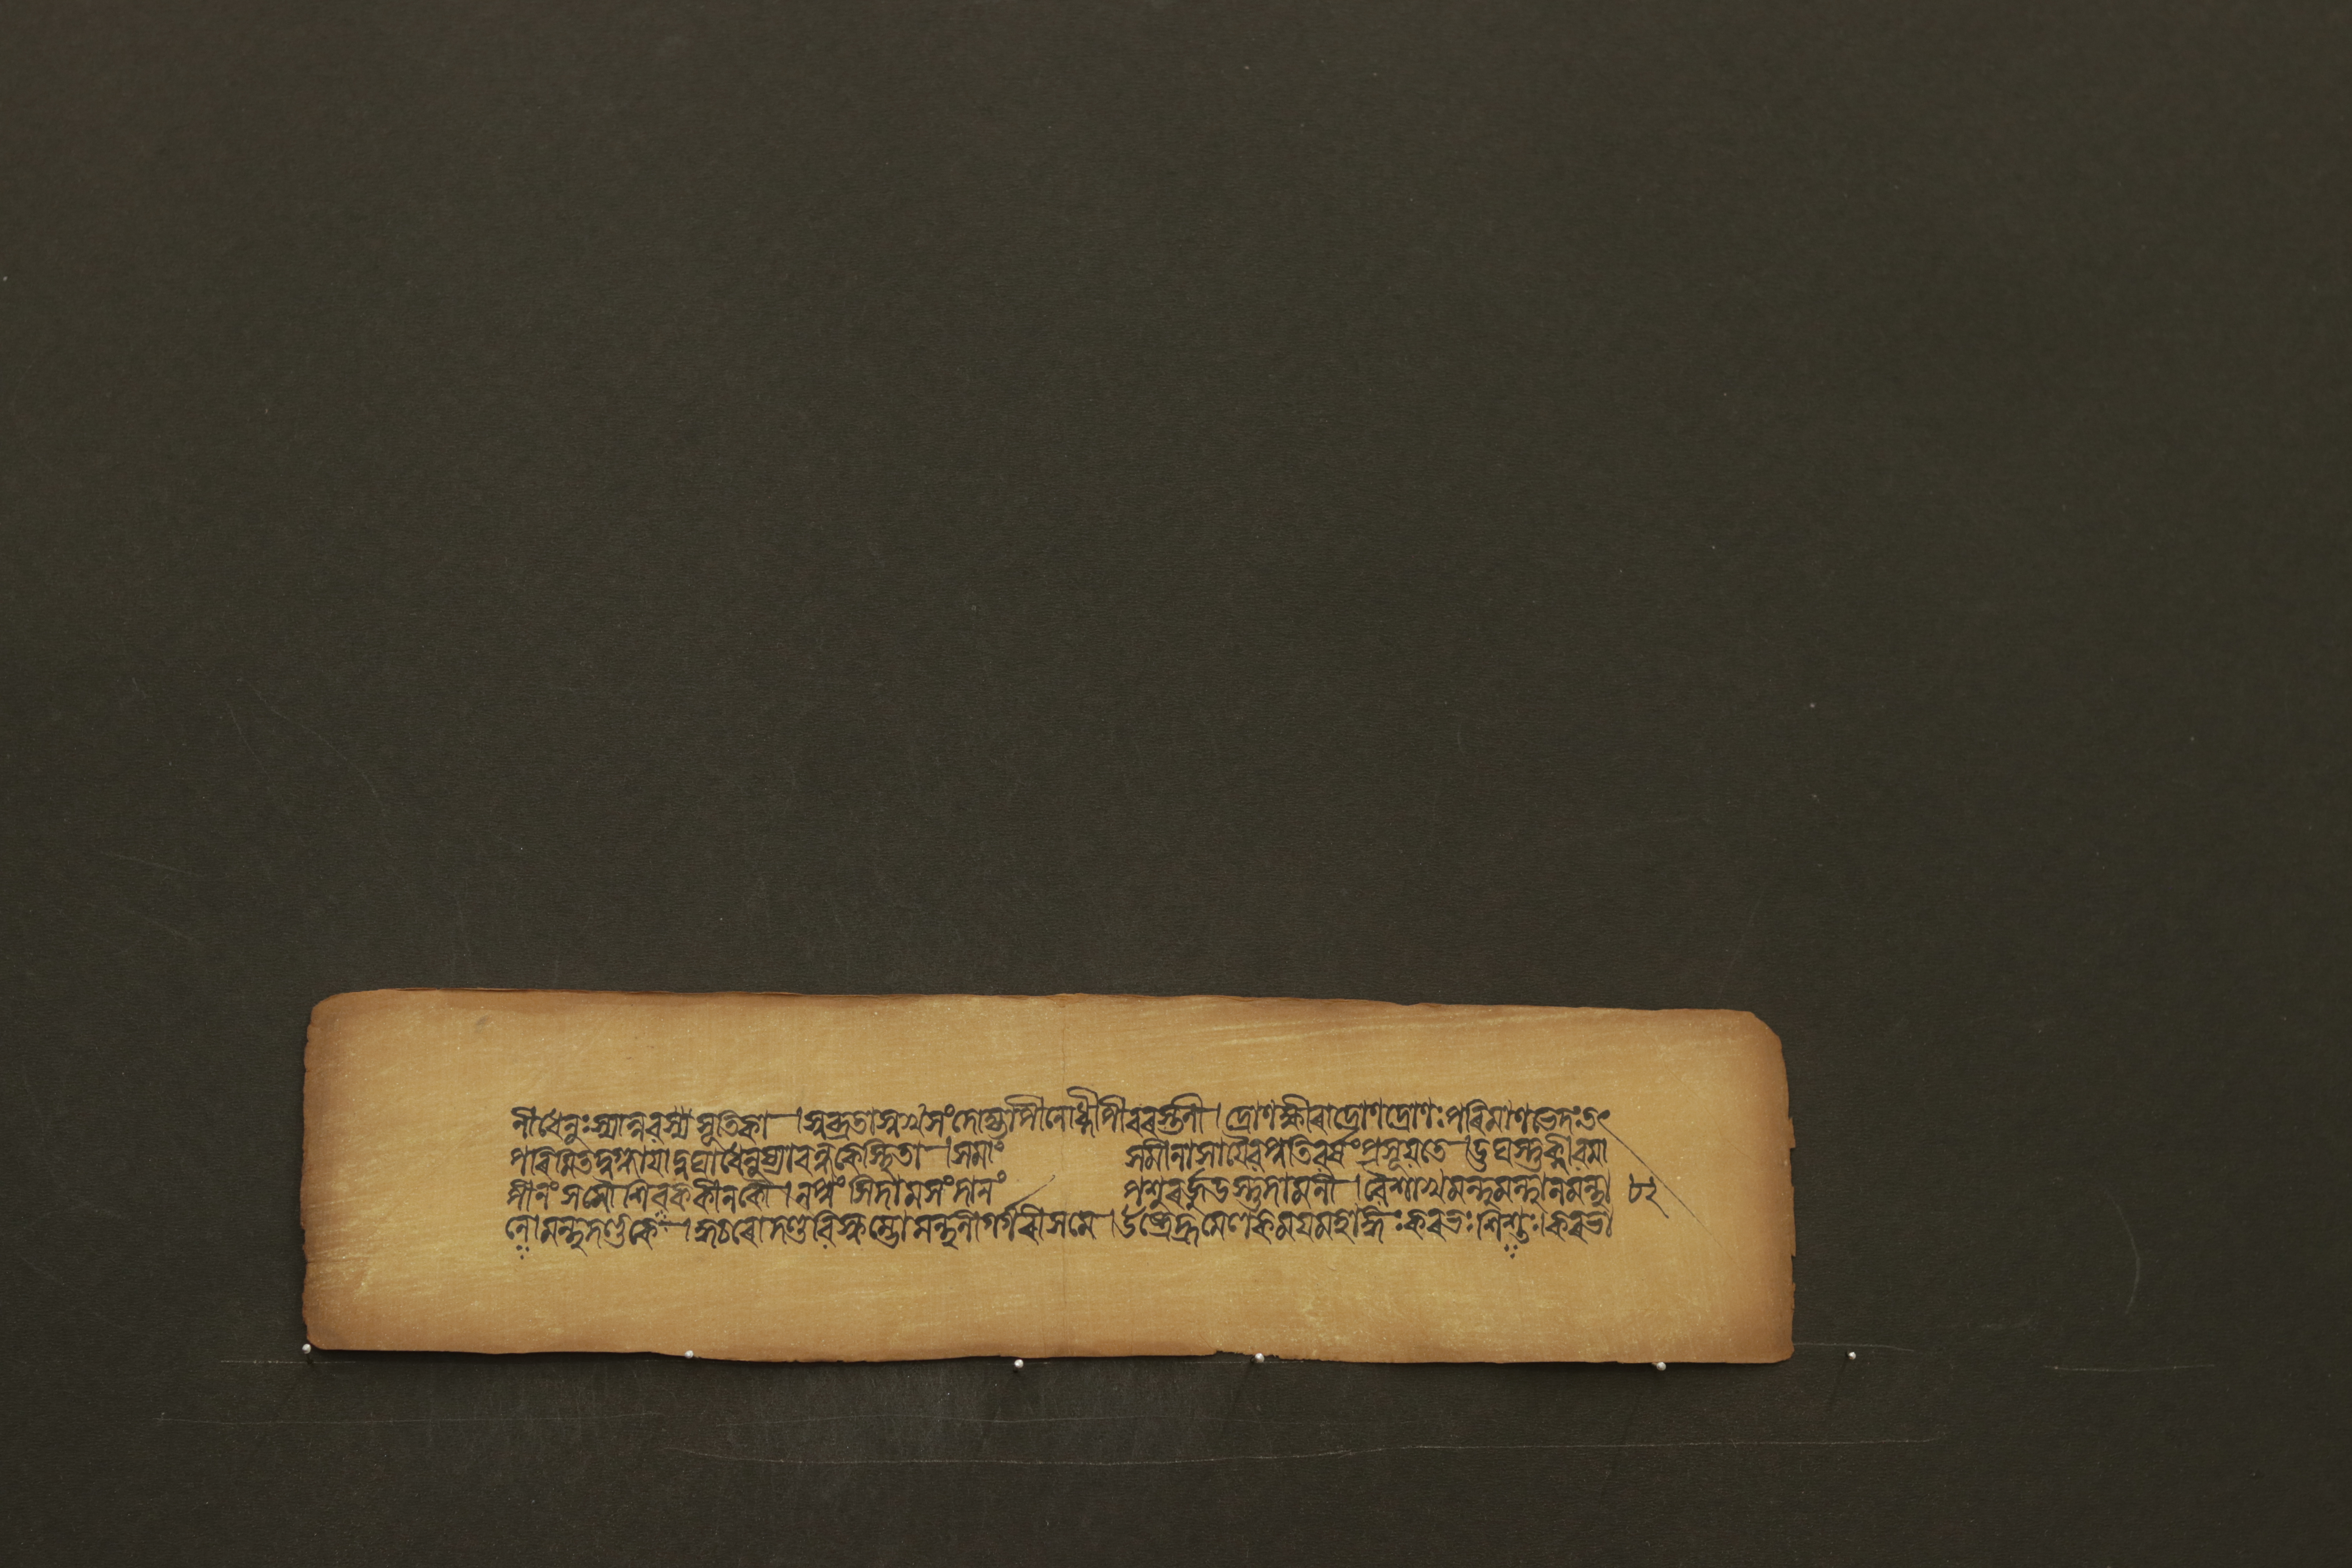 নীধেনুঃস্যান্নবসূতিকা । সুব্ৰতাসুখসংদোহ্যাপীনোধ্নীপীবৰস্তনী । দ্ৰোণক্ষীৰাদ্ৰোণদ্ৰোণঃপৰিমাণভেদঃতৎ
পৰিমিতদুগ্ধাযাদুঘাধেনুষ্যাবন্ধকেস্থিতা । সমাং সমীনাসাযৈবপ্ৰতিবৰ্ষংপ্ৰসূয়তে । ঊধস্তুক্লীবমা
পীনং সমৌ শিবককীলকৌ । নপুংসিদামসংদানং পশুৰজ্জুস্তুদামনী । বৈশাখমন্থমন্থানমন্থা ৮২
নোমন্থদণ্ডকে । কুঠৰোদণ্ডবিষ্কম্ভোমন্থনীগৰ্গৰীসমে । উষ্ট্ৰেক্ৰমেলকময়মহাঙ্গাঃকৰভঃশিশুঃ।কৰভাঃ